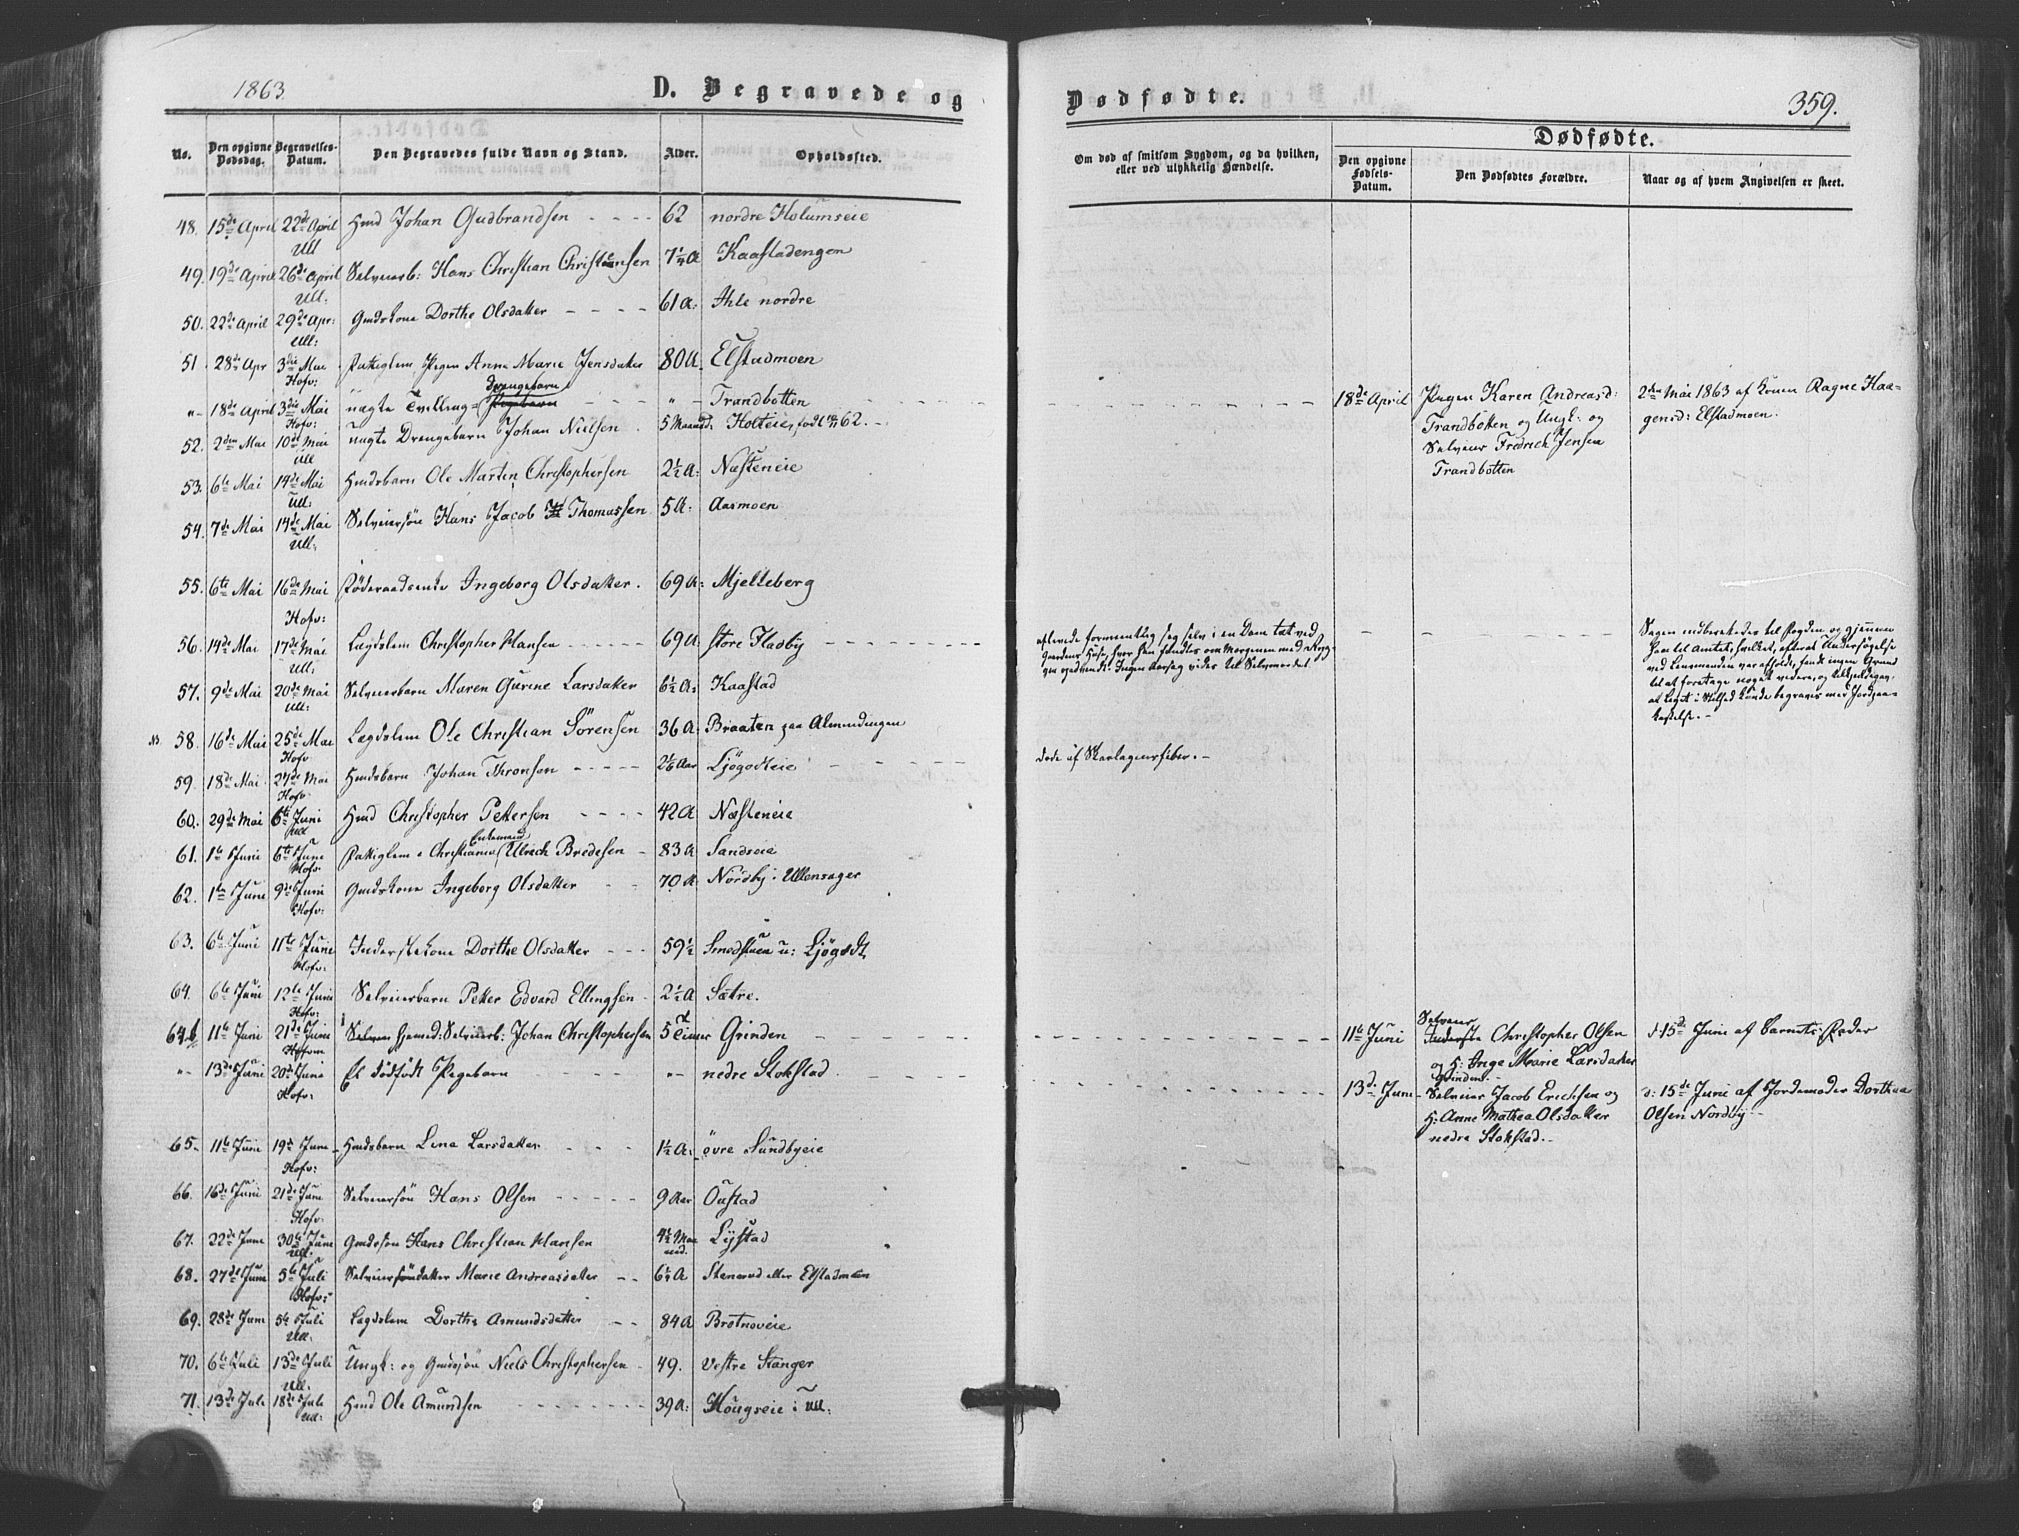 1863
D. Begravede og
Dødfødte.
359.
No.
Den opgivne Dødsdag.
Begravelses-Datum.
Den Begravedes fulde Navn og Stand.
Alder.
Opholdssted.
Om død af smitsom Sygdom, og da hvilken, eller ved ulykkelig Hændelse.
Dødfødte.
Den opgivne Fødsels-Datum.
Den Dødfødtes Forældre.
Naar og af hvem Angivelsen er skeet.
48. 15de April 22de April Ull Hmd Johan Gudbrandsen 62 nordre Holumseie
49. 19de April 26de April Ull: Selveierb: Hans Christian Christiansen 7 1/4 A Kaastadengen
50. 22de April 29de Apr: Ull: Gmdskone Dorthe Olsdatter 61 A: Ihle nordre
51 28de Apr 3die Mai Hofv: Fattiglem Pigen Anne Marie Jensdatter 80 A. Elstadmoen
"- 18de April 3die Mai Hofv: uægte Tvilling= Drengebarn "- Trandbotten
18de April Pigen Karen Andreasd: Trandbotten og Ungk: og Selveier Fredrich Jensen Trandbotten
2den Mai 1863 af Konen Ragne Haagensd: Elstadmoen.
52. 2den Mai 10de Mai Ull uægte Drengebarn Johan Nielsen 5 Maaned. Holteie, født 62.
53. 6te Mai 14de Mai Ull: Hmdsbarn Ole Martin Christophersen 2 1/2 A: Næsteneie
54. 7de Mai 14de Mai Ull: Selveiersøn Hans Jacob Thomassen 5 A: Aasmoen
55. 6te Mai 16de Mai Hofv: Føderaadsenke Ingeborg Olsdatter. 69 A: Mjelleberg
56. 14de Mai 17de Mai Ull: Lægdslem Christopher Hansen 69 A store Fladby
aflivede formentlig seg selv i en Dam tæt ved Gaardens Huse, hvor han fandtes om Morgenen med Ryggen opadvendt. Ingen Aarsag vides til Selvmordet
Sagen indberettedes til Fogden og gjennem ham til Amtet, hvilket, efterat Undersøgelse ved Lensmanden var afholdt, fandt ingen Grund til at foretage noget videre, og tilkjendegav, at Liget i Stilhed kunde begraves med Jordpaakastelse.-
57. 9de Mai 20de Mai Ull: Selveierbarn Maren Gurine Larsdatter 6 1/2 A: Kaastad
58. 16de Mai 25de Mai Hofv Lægdslem Ole Christian Sørensen 36 A: Braaten paa Almendingen
59. 18de Mai 27de Mai Hofv Hmdsbarn Johan Thronsen Aar Ljøgodteie
døde af Skarlagensfeber.-
60. 29de Mai 6te Juni Ull Hmd Christopher Pettersen 42 A Næsteneie
61. 1te Juni 6te Juni Hofv. Fattiglem i Christiania, Enkemand Ulrich Bredesen 83 A Sandseie
62. 1te Juni 9de Juni Hofv: Gmdskone Ingeborg Olsdatter 70 A Nordby i Ullensager
63. 6te Juni 11te Juni Hofv: Inderstekone Dorthe Olsdatter 59 1/2 Smedstuen u: Ljøgodt
64. 6te Juni 12te Juni Hofv: Selveierbarn Petter Edvard Ellingsen 2 1/2 A Sætre.
64.b 11te Juni 21de Juni Hofvin hjemed: Selveierb: Johan Christophersen 5 Timer Grinden
11te Juni Selveier Christopher Olsen og H: Inge Marie Larsdatter Grinden.-
d: 15de Juni af Barnets Fader
"- 13de Juni 20de Juni Hofv: Et dødfødt Pigebarn "- nedre Stokstad
13de Juni Selveier Jacob Erichsen og H: Anne Mathea Olsdatter nedre Stokstad.-
d: 15de Juni af Jordemoder Dorthea Olsen Nordby
65. 11te Juni 19de Juni Hofv: Hmdsbarn Lena Larsdatter 1 1/2 A: øvre Sundbyeie
66. 16de Juni 21de Juni Hofv. Selveiersøn Hans Olsen 9 Aar Oustad
67. 22de Juni 30te Juni Ull. Gmdssøn Hans Christian Hansen 4 1/2 Maaned. Lystad
68. 27de Juni 5te Juli Hofv: Selveierdatter Marie Andreasdatter 6 1/4 A Stenerud eller Elstadmoen
69. 28de Juni 5te Juli Ull. Lægdslem Dorthe Amundsdatter 84 A Brotnoveie
70. 6te Juli 13de Juli Ull. Ungk: og Gmdssøn Niels Christophersen 49. Vestre Stanger
71. 13de Juli 18de Juli Ull: Hmd Ole Amundsen 39 A: Hougseie i Ull: